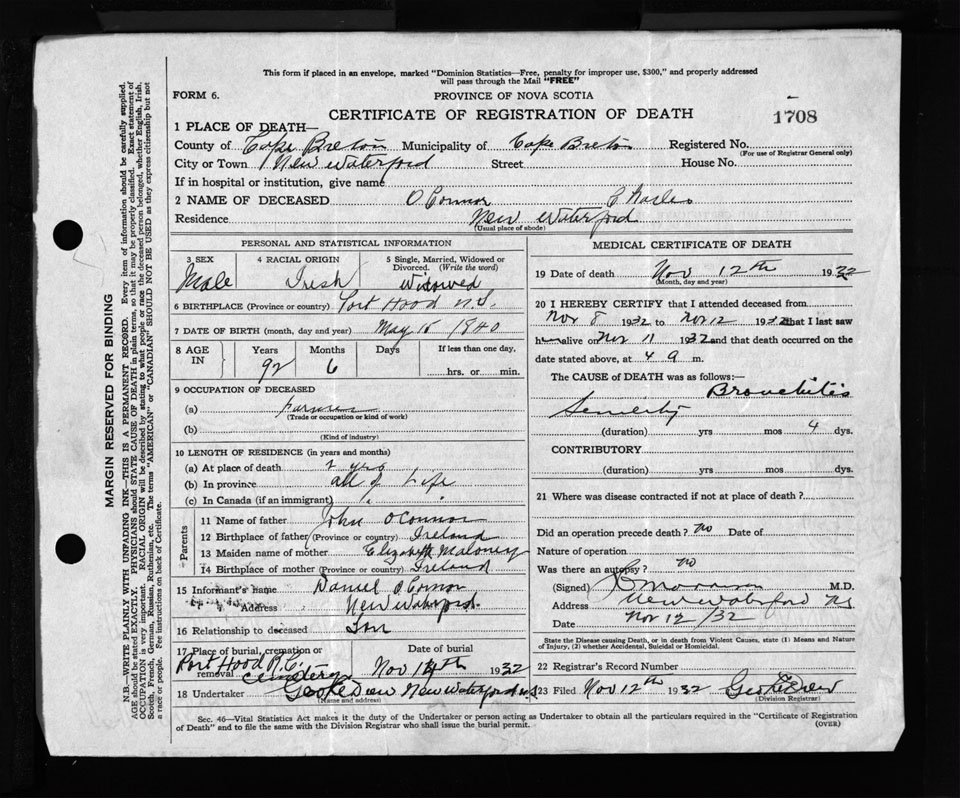 This form if placed in an envelope, marked "Dominion Statistics—Free, penalty for improper use, $300," and properly addressed
will pass through the Mail "FREE"
FORM 6.
PROVINCE OF NOVA SCOTIA
CERTIFICATE OF REGISTRATION OF DEATH
1708
1 PLACE OF DEATH—
County of Cape Breton Municipality of Cape Breton Registered No.
(For use of Registrar General only)
City or Town New Waterford Street House No.
If in hospital or institution, give name
2 NAME OF DECEASED O'Connor Charles
Residence New Waterford
(Usual place of abode)
PERSONAL AND STATISTICAL INFORMATION
3 SEX 4 RACIAL ORIGIN 5 Single, Married, Widowed or
Divorced. (Write the word)
Male Irish Widowed
6 BIRTHPLACE (Province or country) Port Hood N.S.
7 DATE OF BIRTH (month, day and year) May 15 1840
8 AGE IN Years Months Days If less than one day,
92 6 hrs. or min.
9 OCCUPATION OF DECEASED
(a) farmer
(Trade or occupation or kind of work)
(b)
(Kind of industry)
10 LENGTH OF RESIDENCE (in years and months)
(a) At place of death yrs
(b) In province all of Life
(c) In Canada (if an immigrant)
Parents
11 Name of father John O'Connor
12 Birthplace of father (Province or country) Ireland
13 Maiden name of mother Elizabeth Maloney
14 Birthplace of mother (Province or country) Ireland
15 Informant's name Daniel O'Connor
Address New Waterford
16 Relationship to deceased Son
17 Place of burial, cremation or
removal
Date of burial
Port Hood R.C.
Cemetery Nov 14th 1932
18 Undertaker Geo Drew New Waterford N.S
(Name and address)
MEDICAL CERTIFICATE OF DEATH
19 Date of death Nov 12th 1932
(Month, day and year)
20 I HEREBY CERTIFY that I attended deceased from
Nov 8 1932 to Nov 12 1932 that I last saw
him alive on Nov 11 1932 and that death occurred on the
date stated above, at 4 a m.
The CAUSE OF DEATH was as follows:—
Bronchitis
Senility
(duration) yrs mos 4 dys.
CONTRIBUTORY
(duration) yrs mos dys.
21 Where was disease contracted if not at place of death?
Did an operation precede death? no Date of
Nature of operation
Was there an autopsy? no
(Signed) Morrison M.D.
Address New Waterford NS
Date Nov 12/32
State the Disease causing Death, or in death from Violent Causes, state (1) Means and Nature
of Injury, (2) whether Accidental, Suicidal or Homicidal.
22 Registrar's Record Number
23 Filed Nov 12th 1932 Geo Drew
(Division Registrar)
Sec. 46—Vital Statistics Act makes it the duty of the Undertaker or person acting as Undertaker to obtain all the particulars required in the "Certificate of Registration
of Death" and to file the same with the Division Registrar who shall issue the burial permit.
(OVER)
MARGIN RESERVED FOR BINDING
N.B.—WRITE PLAINLY WITH UNFADING INK—THIS IS A PERMANENT RECORD. Every item of information should be carefully supplied.
AGE should be stated EXACTLY. PHYSICIANS should STATE CAUSE OF DEATH in plain terms, so that it may be properly classified. Exact statement of
OCCUPATION is very important. RACIAL ORIGIN will be described by stating to what people or race the deceased person belonged, whether English, Irish,
Scotch, French, German, Russian, Ruthenian, etc. The terms "AMERICAN" or "CANADIAN" SHOULD NOT BE USED as they express citizenship but not
a race or people. See instructions on back of Certificate.